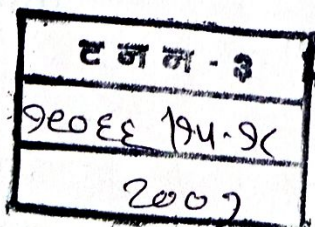 ट न न - ३
१९०६६ /१५-१८
२००१